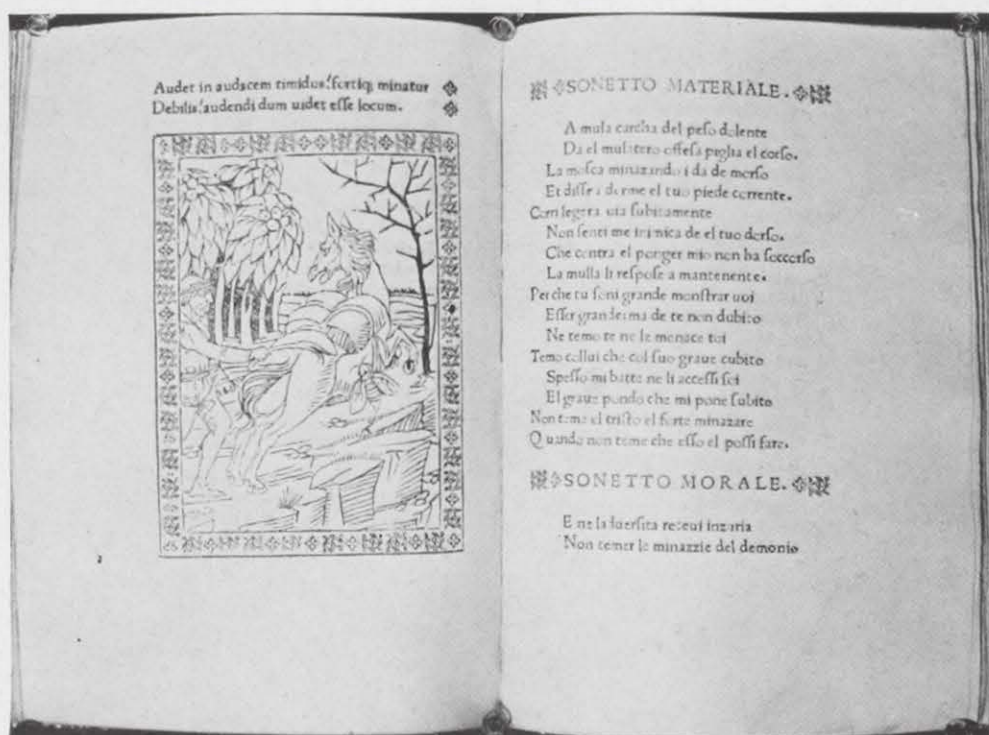 Audet in audacem timidus: fortiq; minatur
Debilis: audendi dum uidet esse locum.
SONETTO MATERIALE.
A mula carcha del peso dolente
Da el mulatero offesa piglia el corso.
La mosca minazando i da de morso
Et disse a darme el tuo piede corrente.
Com legera uia subitamente
Non senti me inimica de el tuo dorso.
Che contra el ponger mio non ha soccorso
La mulla li respose a mantenente.
Perche tu soni grande monstrar uoi
Esser grande: ma de te non dubito
Ne temo te ne le menace toi
Temo collui che col suo graue cubito
Spesso mi batte ne li accessi soi
El graue pondo che mi pone subito
Non teme el tristo el forte minazare
Quando non teme che esso el possi fare.
SONETTO MORALE.
E ne la duersita receui inzuria
Non temer le minazzie del demonio